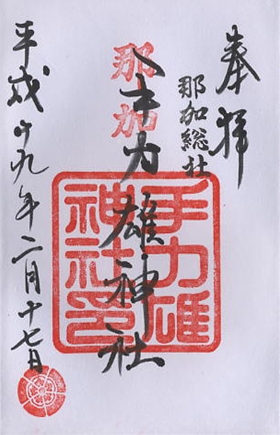 奉拝
那加総社
那加
手力雄神社
手力雄
神社印
平成十九年二月十七日